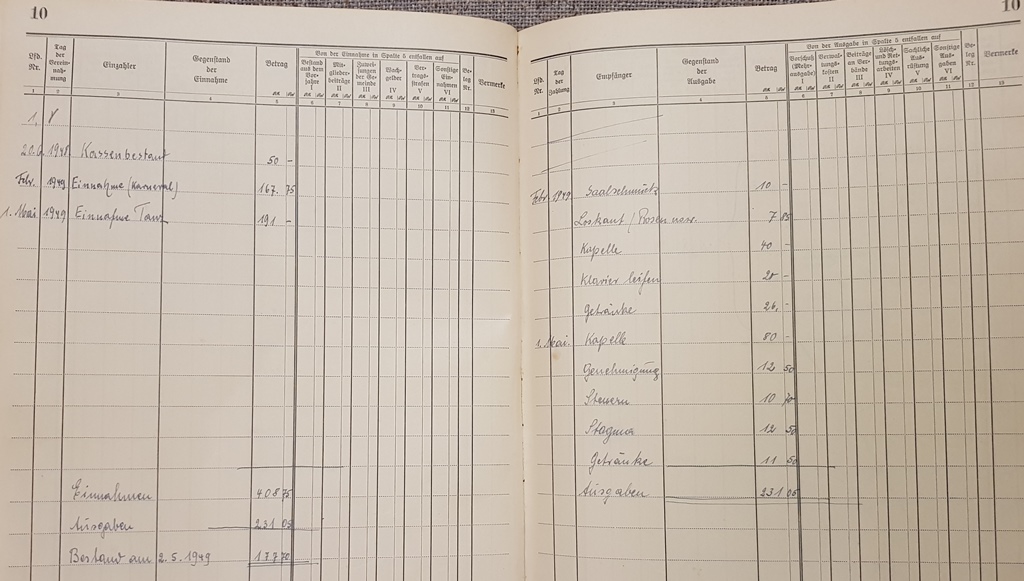 10
Lfd. Nr.
Tag der Vereinnahmung
Einzahler
Gegenstand der Einnahme
Betrag
Von der Einnahme in Spalte 5 entfallen auf
Bestand aus dem Vorjahre I
Mitgliederbeiträge II
Zuweisungen der Gemeinde III
Wachgelder IV
Vertragsstrafen V
Sonstige Einnahmen VI
Beleg Nr.
Vermerke
1 2 3 4 5 6 7 8 9 10 11 12 13
1.
20.6. 1948 Kassenbestand 50 -
Febr. 1949 Einnahme (Karneval) 167. 75
1. Mai 1949 Einnahme Tanz 191 -
Einnahmen 408 75
Ausgaben 231 05
Bestand am 2.5.1949 177 70
10
Lfd. Nr.
Tag der Zahlung
Empfänger
Gegenstand der Ausgabe
Betrag
Von der Ausgabe in Spalte 5 entfallen auf
Vorschuß (Mehrausgabe) I
Verwaltungskosten II
Beiträge an Verbände III
Lösch- und Rettungsarbeiten IV
Sachliche Ausrüstung V
Sonstige Ausgaben VI
Beleg Nr.
Vermerke
1 2 3 4 5 6 7 8 9 10 11 12 13
Febr. 1949 Saalschmuck 10 -
Loskauf / Rosen usw. 7 85
Kapelle 40 -
Klavier leihen 20 -
Getränke 26,-
1. Mai. Kapelle 80 -
Genehmigung 12 50
Steuern 10 70
Stagma 12 50
Getränke 11 50
Ausgaben 231 05